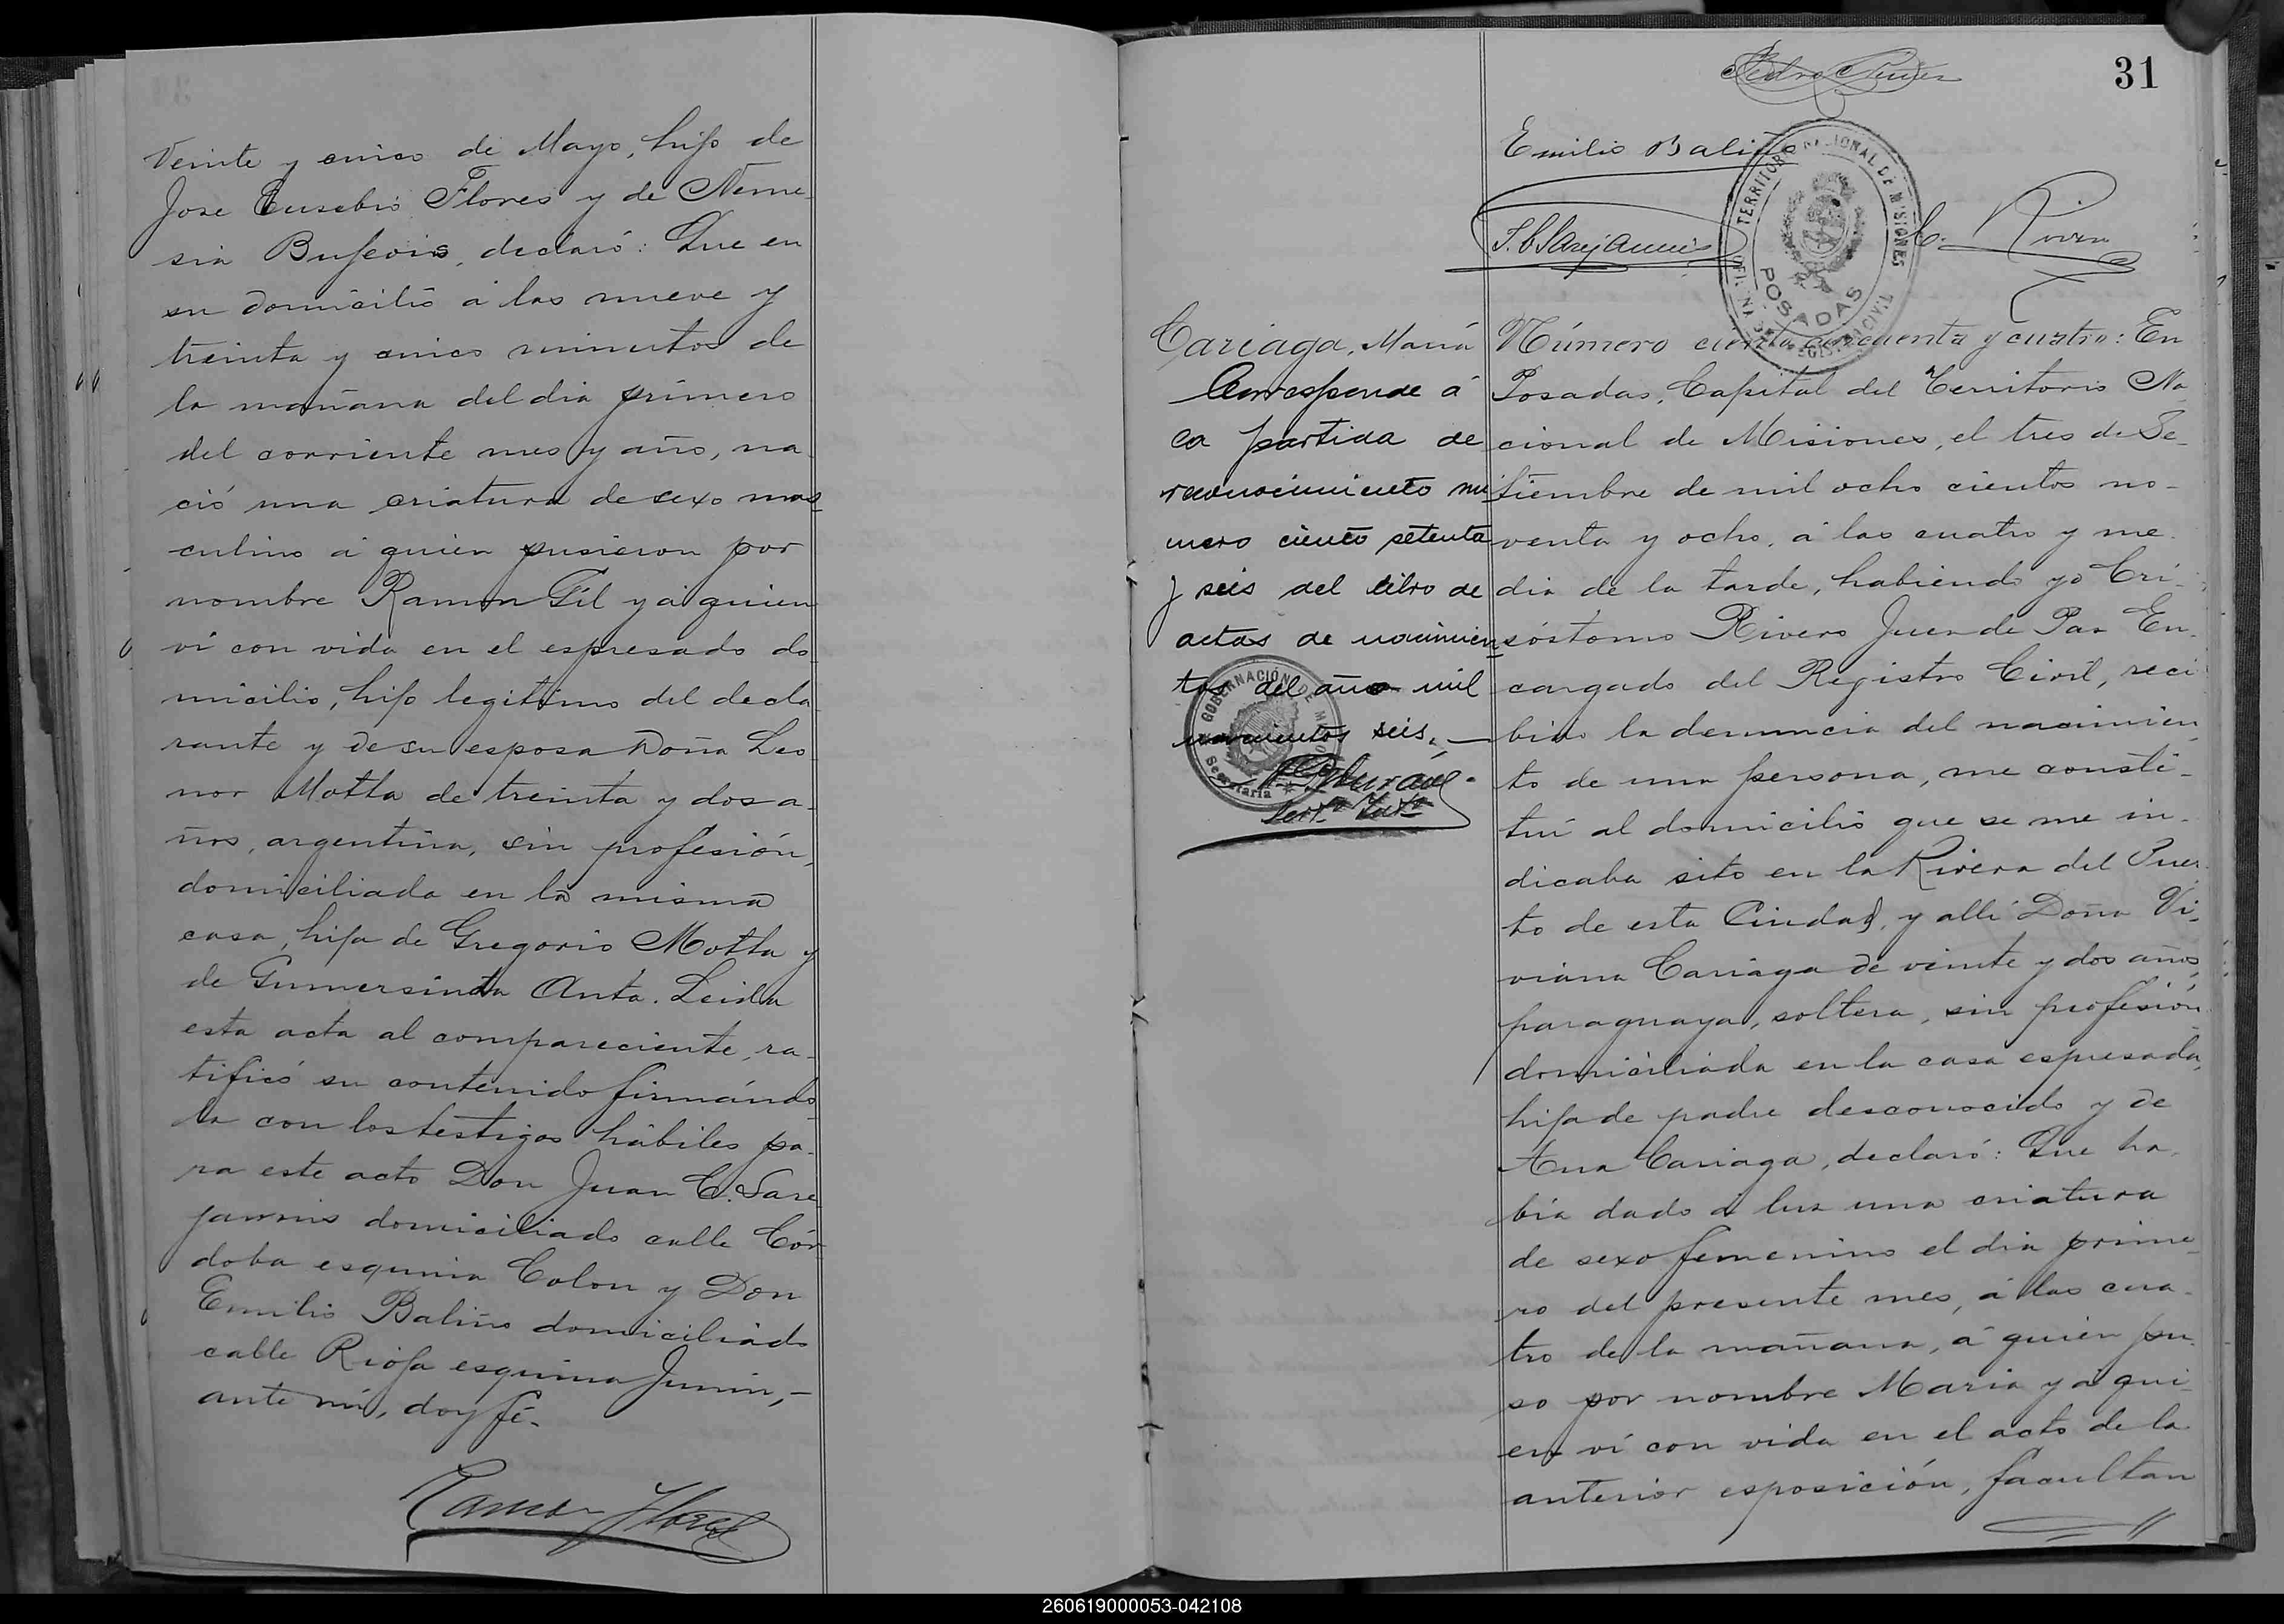 Veinte y cinco de Mayo, hijo de
Jose Eusebio Flores y de Neme-
sia declaró: Que en
su domicilio á las nueve y
treinta y cinco minutos de
la mañana del dia primero
del corriente mes y año, na-
ció una criatura de sexo mas-
culino á quien pusieron por
nombre Ramon Gil y á quien
ví con vida en el espresado do-
micilio, hijo legitimo del decla-
rante y de su esposa Doña Leo-
nor Motta de treinta y dos a-
ños, argentina, sin profesión,
domiciliada en la misma
casa, hija de Gregorio Motta y
de Gumersinda Anta. Leida
esta acta al compareciente, ra-
tificó su contenido firmándo-
la con los testigos hábiles pa-
ra este acto Don Juan C. Sare-
jannis domiciliado calle Cór-
doba esquina Colon y Don
Emilio Baliño domiciliado
calle Rioja esquina Junin,-
ante mí, doy fé.
Ramon Flores
31
Pedro
Emilio Baliño
C. Rivero
TERRITORIO NACIONAL DE MISIONES
OFICINA DEL REGISTRO CIVIL
POSADAS
Cariaga, María
Corresponde á
la partida de
reconocimiento nú-
mero ciento setenta
y seis del libro de
actas de nacimien-
tos del año mil
novecientos seis.-
GOBERNACIÓN DE MISIONES
Secretaria
Número ciento cincuenta y cuatro: En
Posadas, Capital del Territorio Na-
cional de Misiones, el tres de Se-
tiembre de mil ocho cientos no-
venta y ocho, á las cuatro y me-
dia de la tarde, habiendo yo Cri-
sóstomo Rivero Juez de Paz En-
cargado del Registro Civil, reci-
bido la denuncia del nacimien-
to de una persona, me consti-
tuí al domicilio que se me in-
dicaba sito en la Rivera del Puer-
to de esta Ciudad, y allí Doña Vi-
viana Cariaga de veinte y dos años,
paraguaya, soltera, sin profesión
domiciliada en la casa espresada,
hija de padre desconocido y de
Ana Cariaga, declaró: Que ha-
bía dado á luz una criatura
de sexo femenino el dia prime-
ro del presente mes, á las cua-
tro de la mañana, á quien pu-
so por nombre Maria y á qui-
en ví con vida en el acto de la
anterior esposición, facultan
260619000053-042108